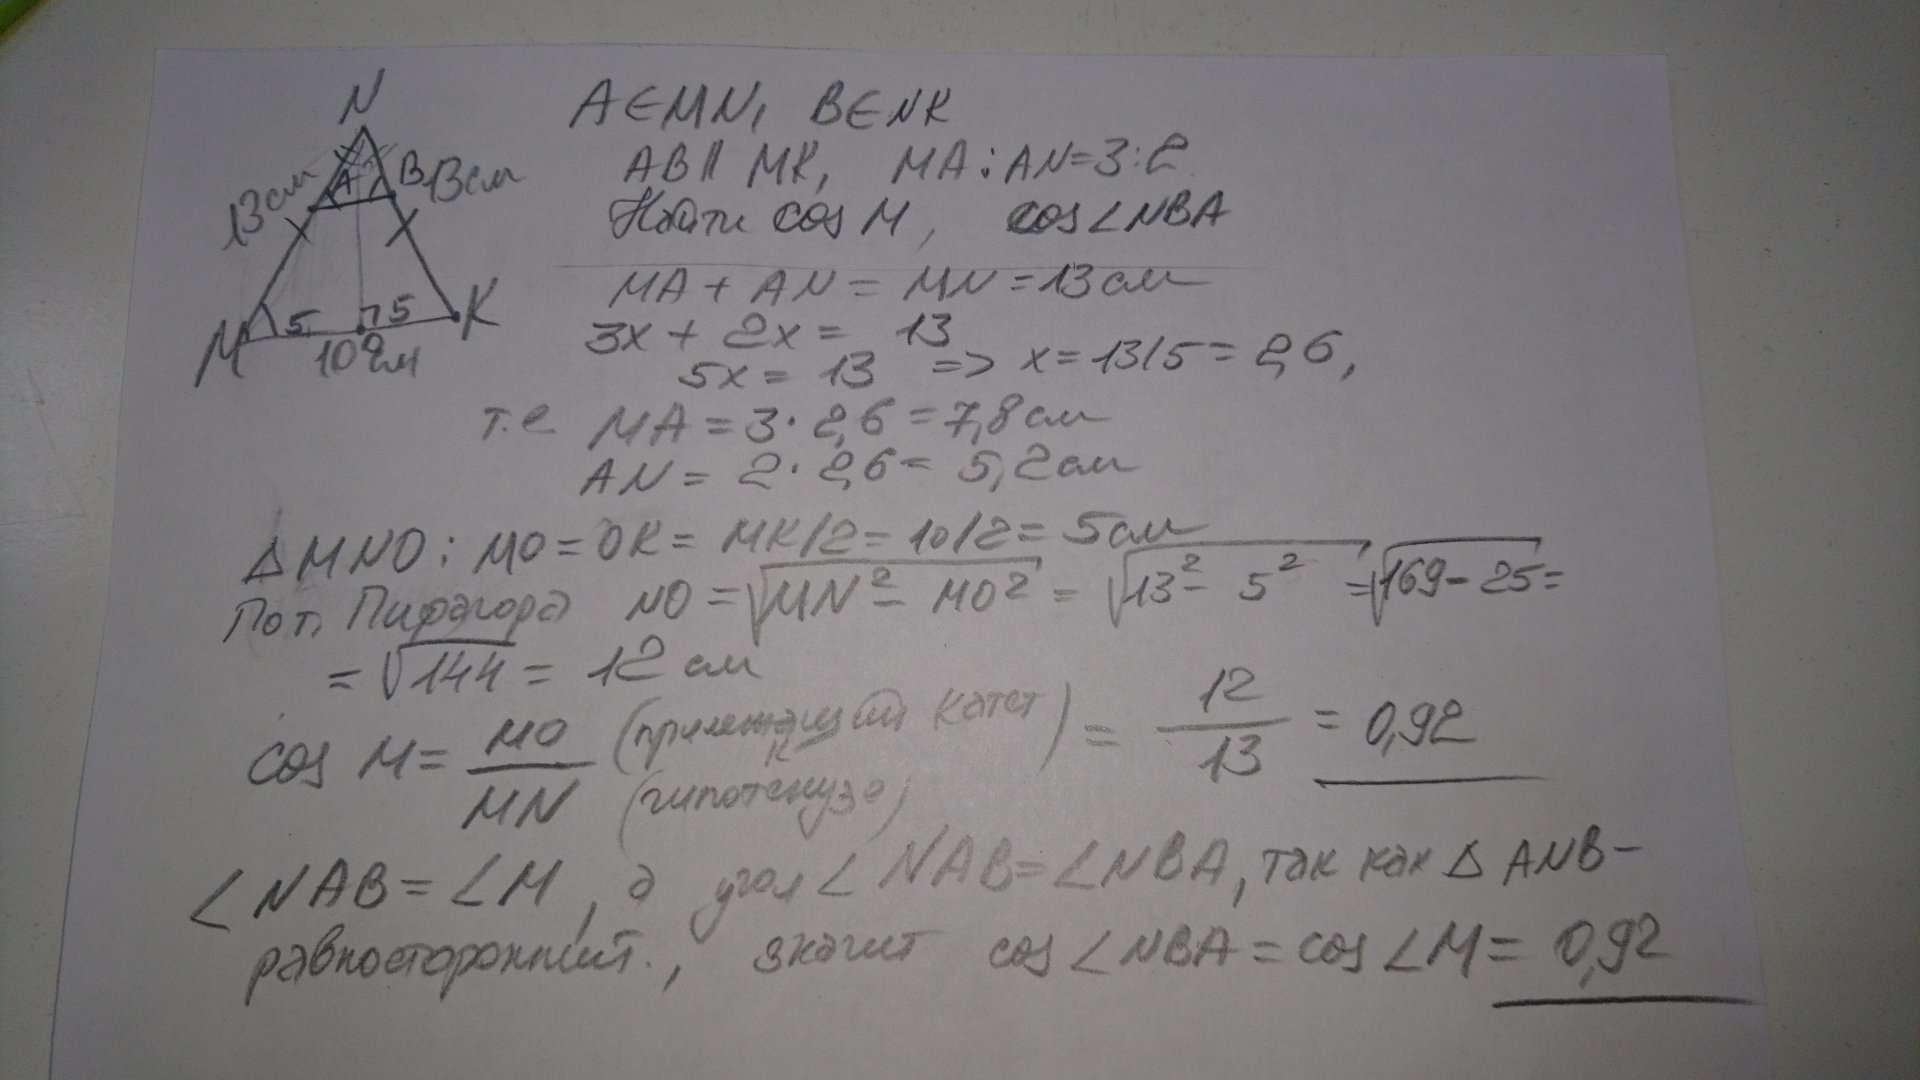 N
A B
13см 13см
M 5 5 K
10см
A∈MN, B∈NK
AB || MK, MA:AN=3:2
Найти cos M, cos∠NBA
MA + AN = MN = 13см
3x + 2x = 13
5x = 13 => x = 13/5 = 2,6,
т.е MA = 3·2,6 = 7,8см
AN = 2·2,6 = 5,2см
△MNO: MO = OK = MK/2 = 10/2 = 5см
По т. Пифагора NO = √MN² - MO² = √13² - 5² = √169 - 25 =
= √144 = 12 см
cos M = MO/MN (прилежащий катет) / (гипотенуза) = 12/13 = 0,92
∠NAB = ∠M, а угол ∠NAB = ∠NBA, так как △ANB -
равносторонний., значит cos∠NBA = cos∠M = 0,92